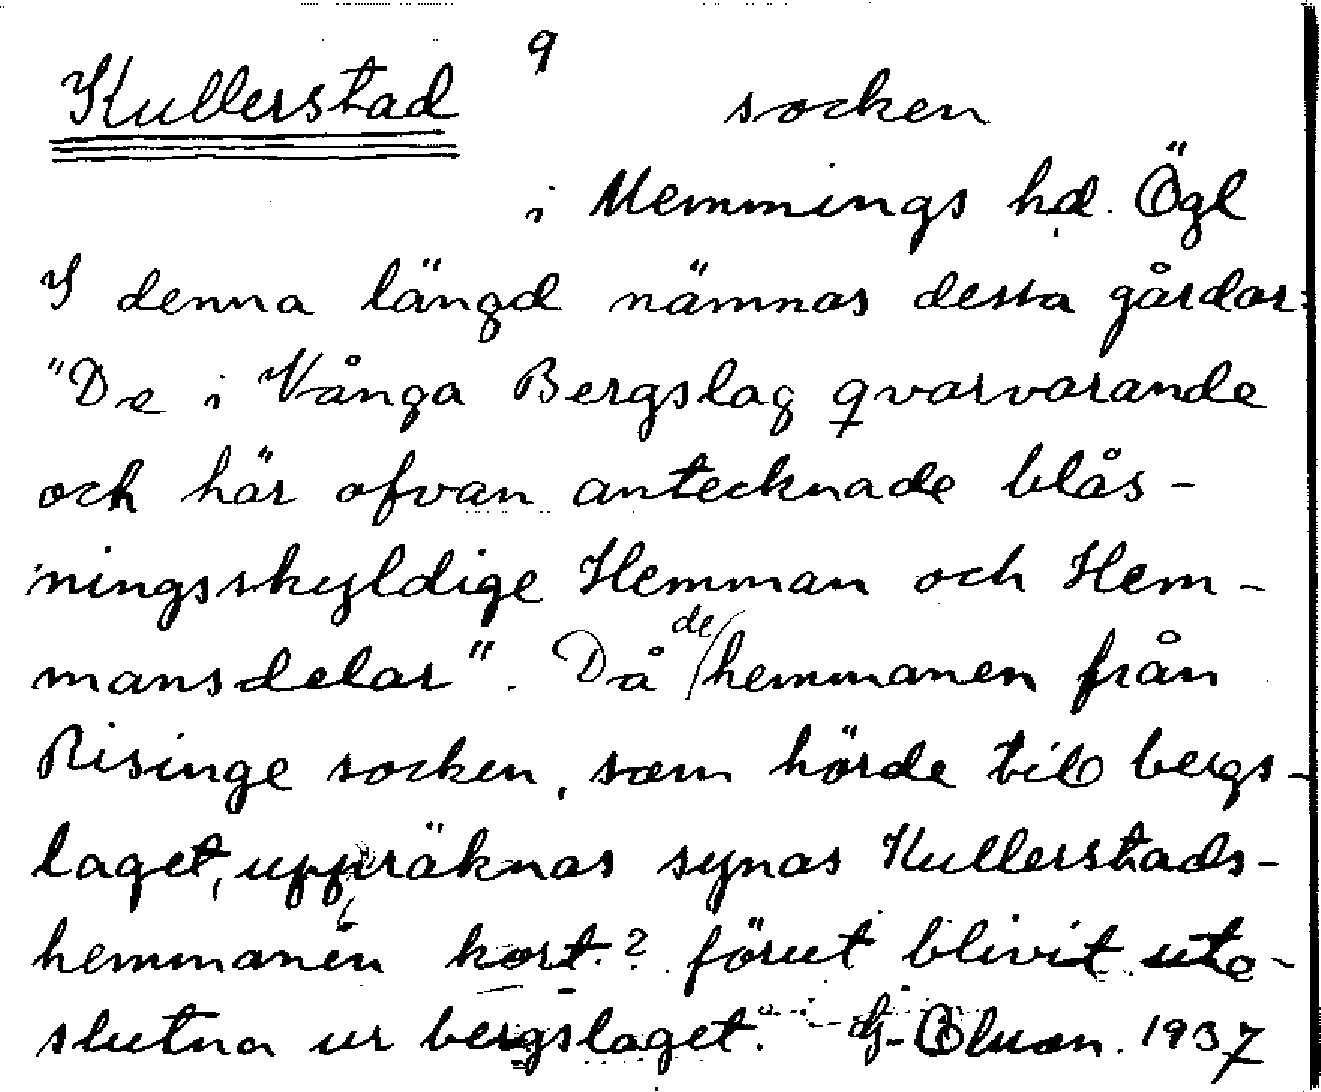 9
Kullerstad socken
i Memmings hd. Ögl
I denna längd nämnas dessa gårdar:
"De i Vånga Bergslag qvarvarande
och här ofvan antecknade blås-
ningsskyldige Hemman och Hem-
mansdelar". Då de hemmanen från
Risinge socken, som hörde till bergs-
laget, uppräknas synas Kullerstads-
hemmanen kort? förut blivit ute-
slutna ur bergslaget. G. 1937